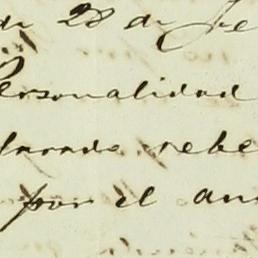 de 28 de Fe
Personalidad
larado rebe
por el an